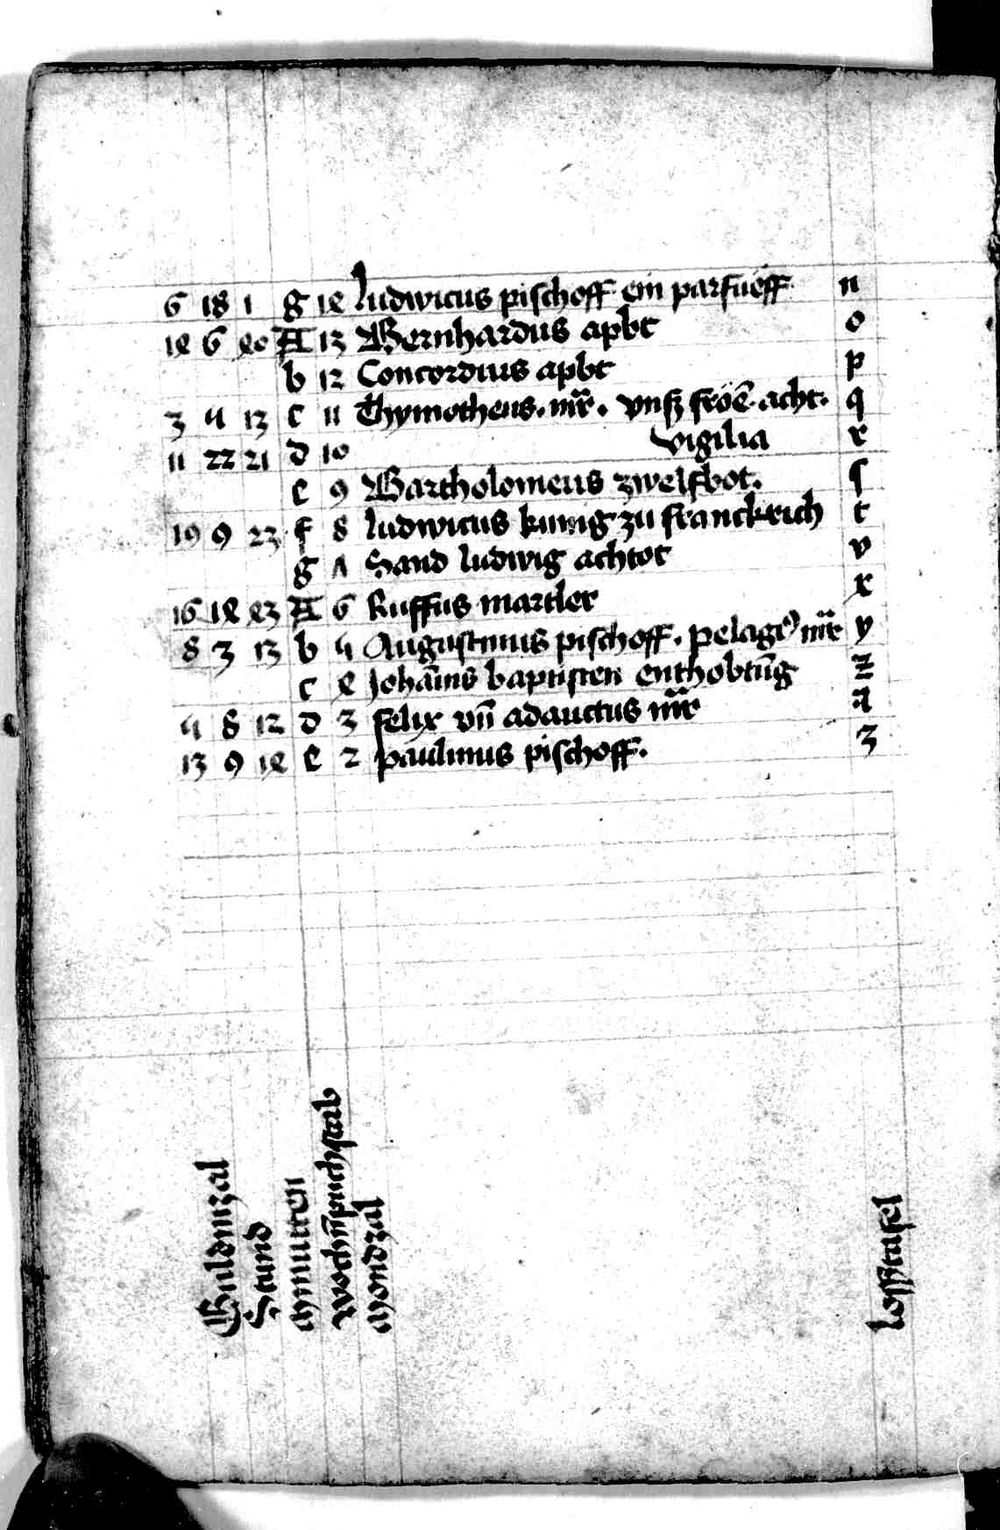 6 18 1 g 1ɐ ludwicus pischoff ein parfueff n
1ɐ 6 ɐ0 A 13 Bernhardus apbt o
b 12 Concordius apbt p
3 4 13 c 11 Thymotheus. mr̃. vnß froẽ. acht. q
11 22 21 d 10 vigilia r
e 9 Bartholomeus zwelfbot. ſ
19 9 23 f 8 ludwicus kunig zu franckrich t
g ʌ Sand ludwig achtot v
16 1ɐ ɐ3 A 6 Ruffus martler x
8 3 13 b 4 Augustinus pischoff. pelagꝰ mr̃ y
c ɐ Johãns baptisten enthobtũg z
4 8 12 d 3 felix vñ adauctus mr̃ a
13 9 1ɐ e 2 paulinus pischoff. 3
Guldinzal
Stund
Minutten
Wochñpuchstab
Mondzal
losstafel